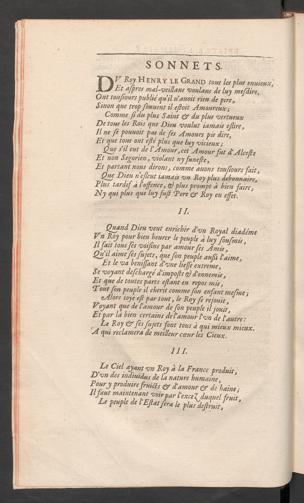 SONNETS.
DV Roy HENRY LE GRAND tous les plus enuieux,
Et aspres mal-veillans voulans de luy mesdire,
Ont tousiours publié qu'il n'auoit rien de pire,
Sinon que trop souuent il estoit Amoureux;
Comme si du plus Saint & du plus vertueux
De tous les Rois que Dieu voulut iamais eslire,
Il ne se pouuoit pas de ses Amours pis dire,
Et que tout ont esté plus que luy vicieux;
Qui s'il eut de l'Amour, cet Amour fut d'Alceste
Et non Segorien, violant ny funeste,
Et partant nous dirons, comme auons tousiours fait,
Que Dieu n'esleut iamais vn Roy plus debonnaire,
Plus tardif à l'offence, & plus prompt à bien faire,
Ny qui plus que luy fust Pere & Roy en effet.
II.
Quand Dieu veut enrichir d'vn Royal diadéme
Vn Roy pour bien heurer le peuple à luy sousmis,
Il fait tous ses voisins par amour ses Amis,
Qu'il aime ses sujets, que son peuple aussi l'aime,
Et le va benissant d'vne liesse extreme,
Se voyant deschargé d'imposts & d'ennemis,
Et que de toutes pares estant en repos mis,
Tout son peuple il cherit comme son enfant mesme;
Alors ioye est par tout, le Roy se rejouit,
Voyant que de l'amour de son peuple il jouit,
Et par la bien certains de l'amour l'vn de l'autre:
Le Roy & ses sujets sont tous à qui mieux mieux.
A qui reclamera de meilleur cœur les Cieux.
III.
Le Ciel ayant vn Roy à la France produit,
D'vn des indiuidus de la nature humaine,
Pour y produire fruicts & d'amour & de haine;
Il faut maintenant voir par l'excez duquel fruit,
Le peuple de l'Estat sera le plus destruit,